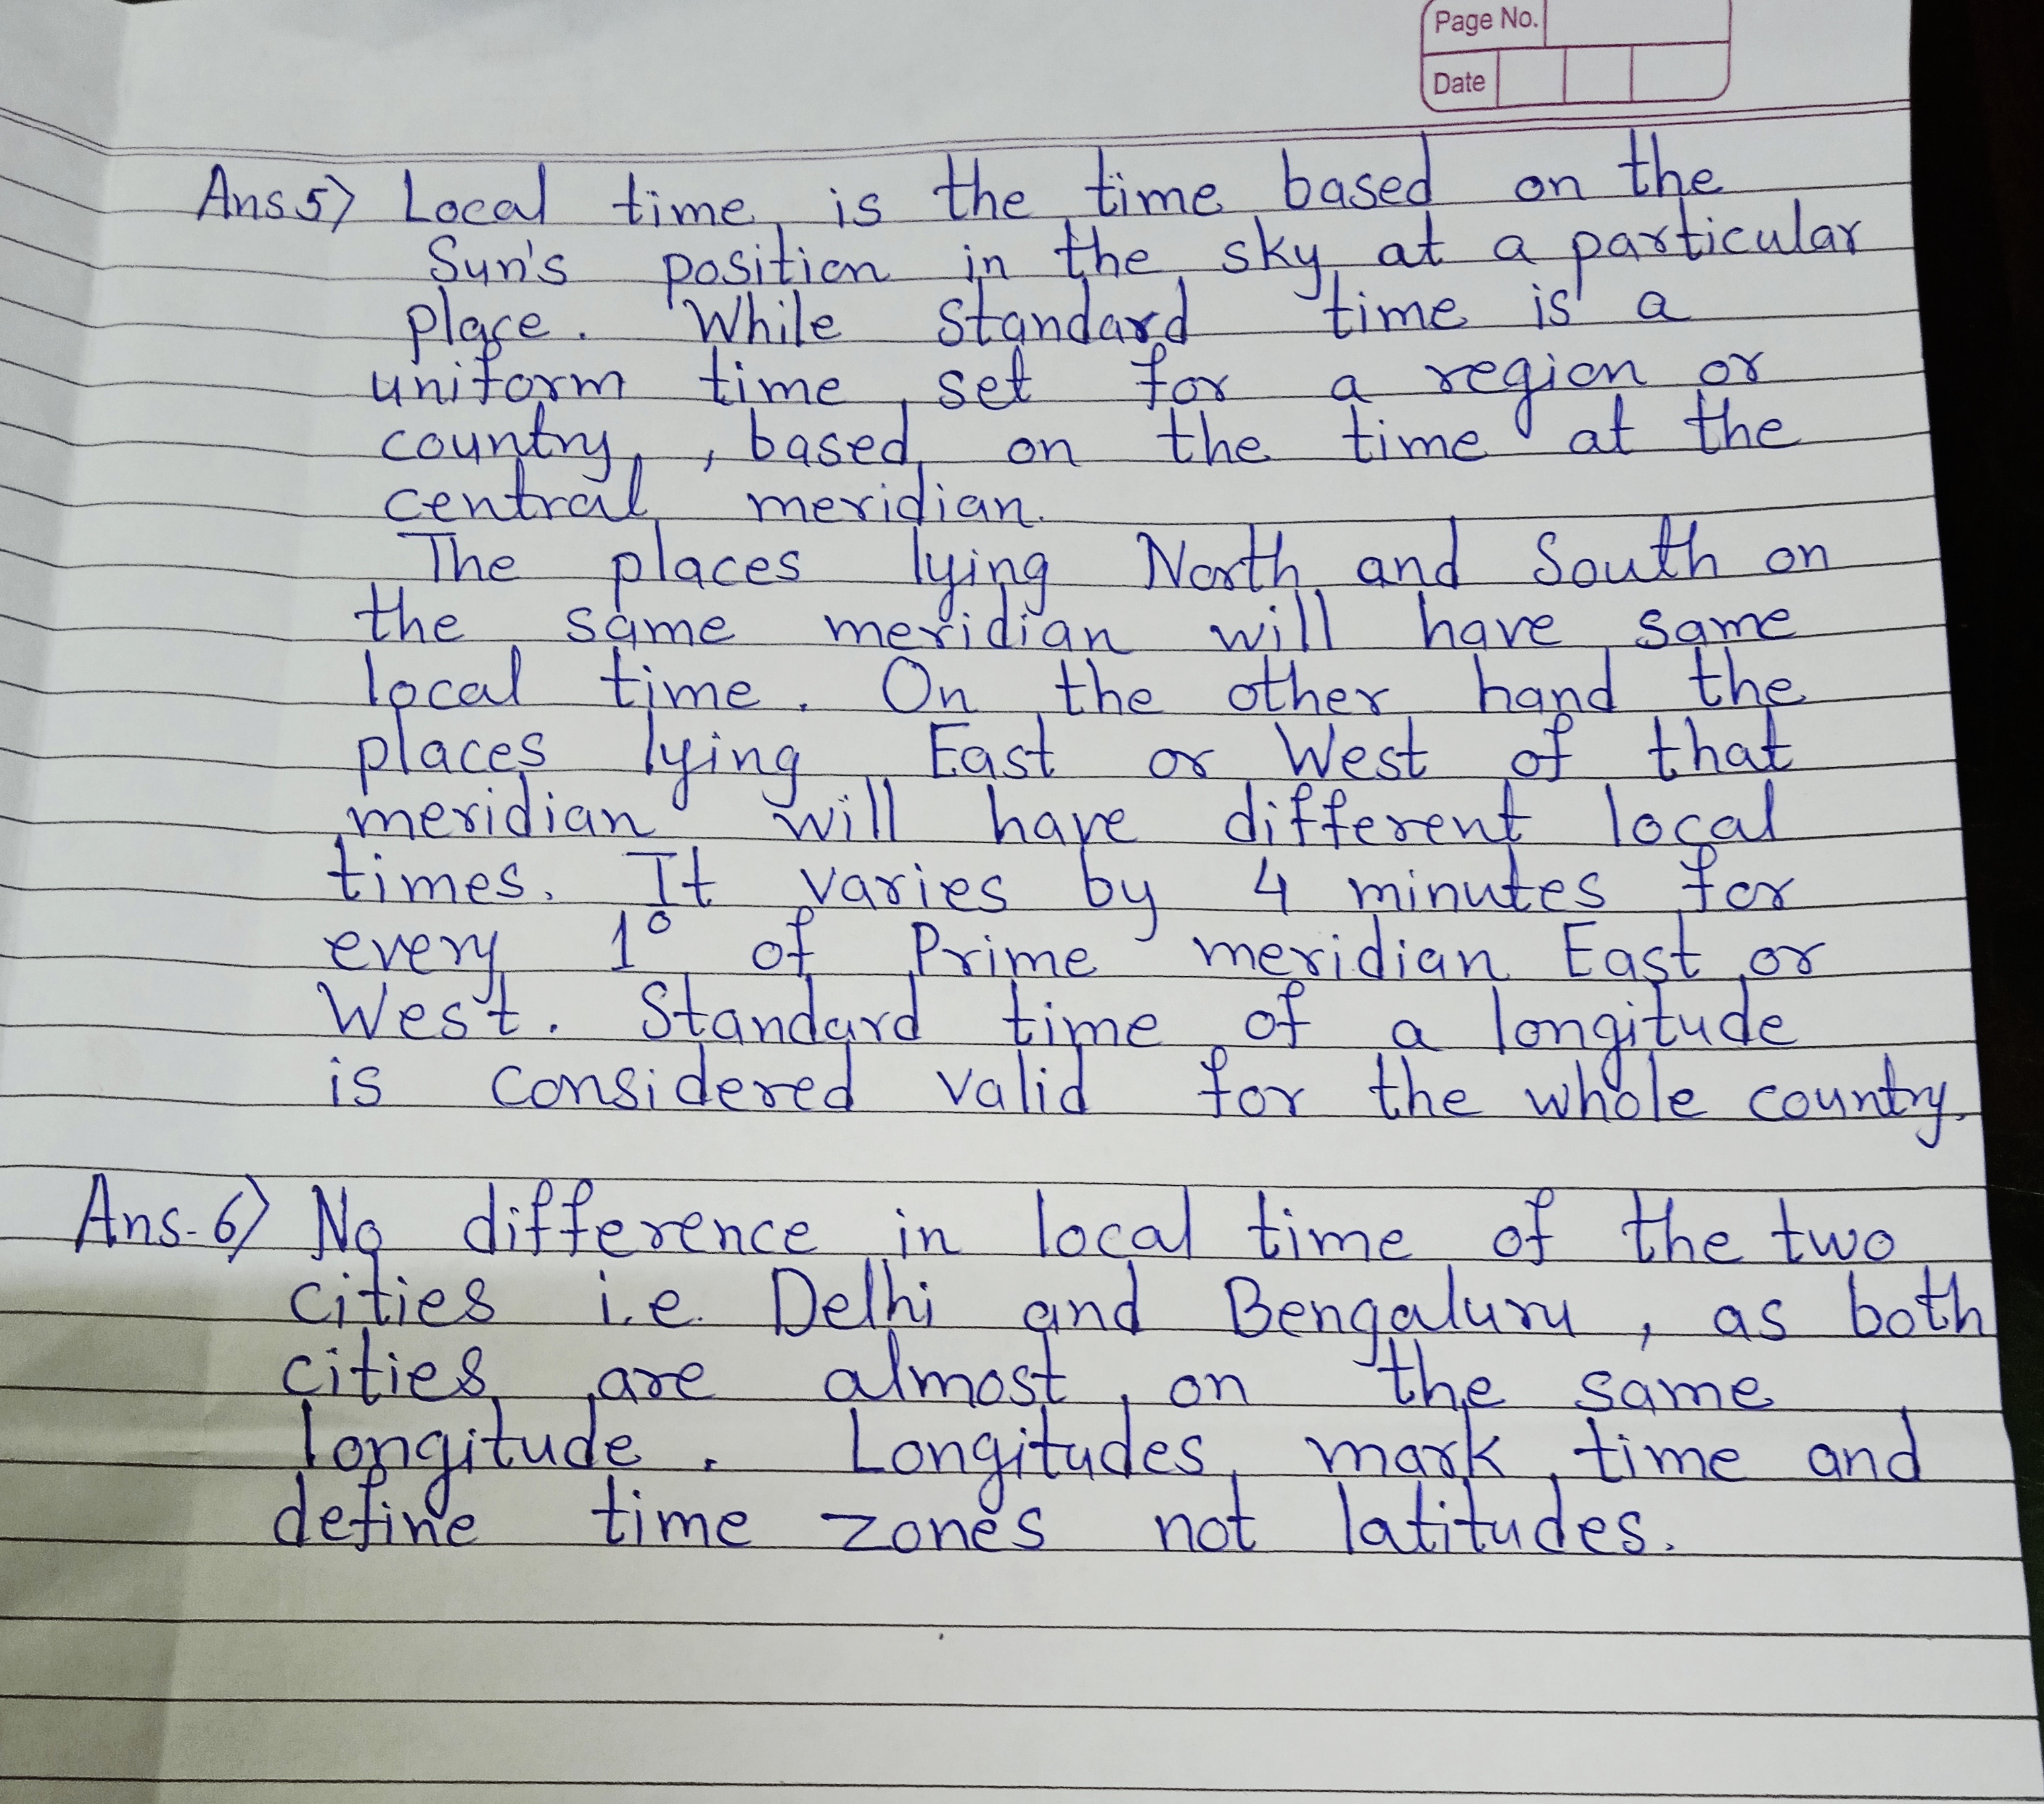 Page No.
Date
Ans 5) Local time is the time based on the
Sun's position in the sky at a particular
place. While standard time is a
uniform time set for a region or
country, based on the time at the
central meridian.
The places lying North and South on
the same meridian will have same
local time. On the other hand the
places lying East or West of that
meridian will have different local
times. It varies by 4 minutes for
every 1° of Prime meridian East or
West. Standard time of a longitude
is considered valid for the whole country.
Ans-6) No difference in local time of the two
cities i.e. Delhi and Bengaluru, as both
cities are almost on the same
longitude. Longitudes mark time and
define time zones not latitudes.